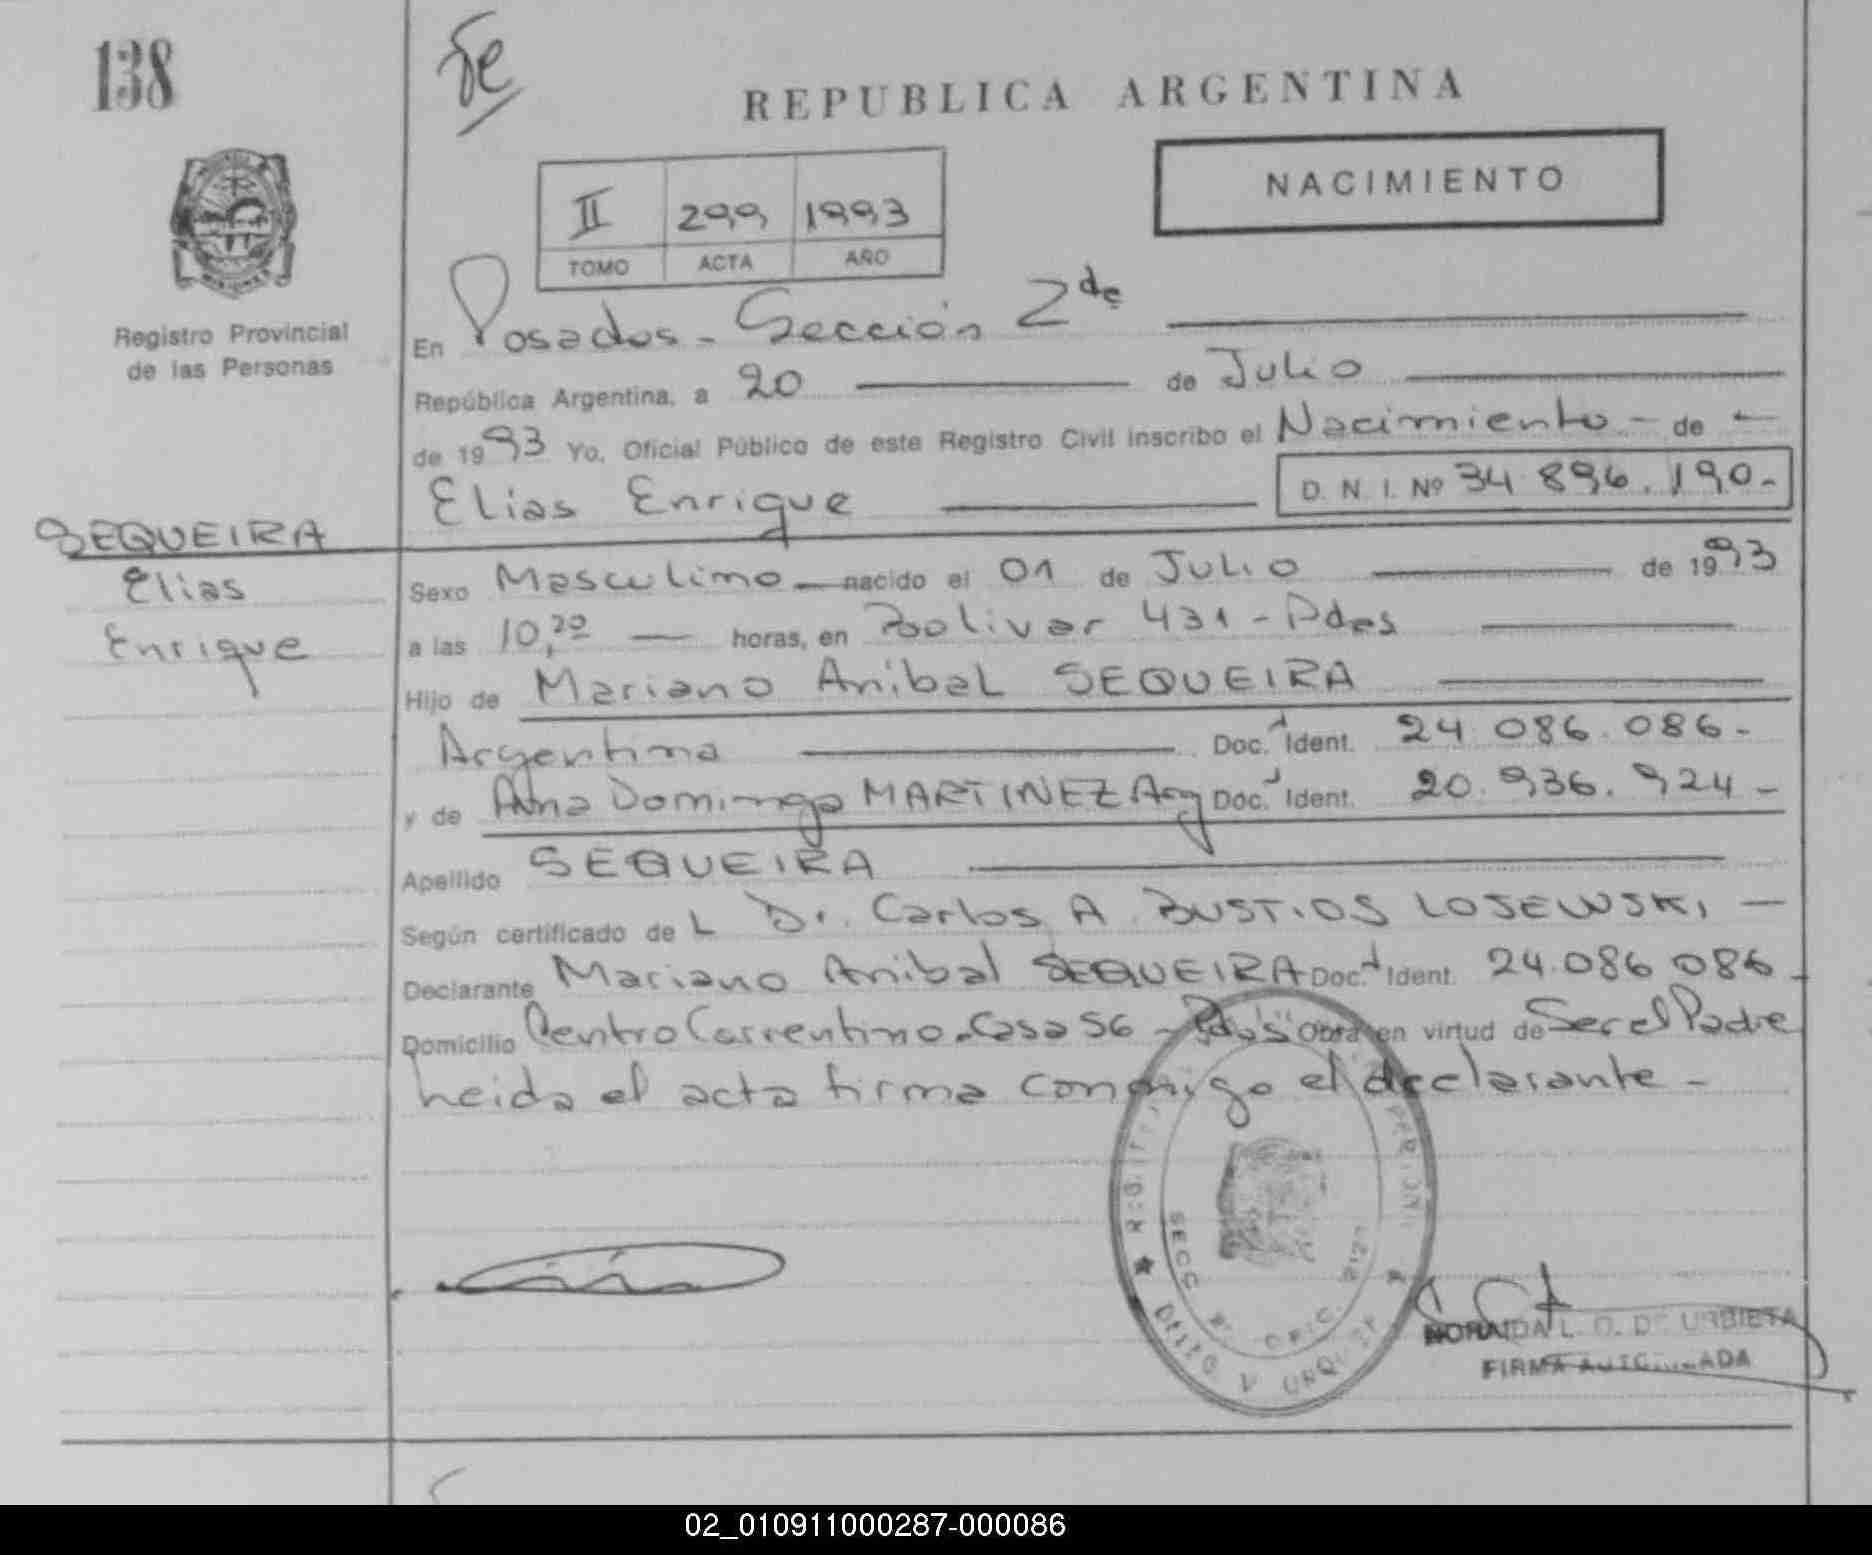 138
REPUBLICA ARGENTINA
NACIMIENTO
II 299 1993
TOMO ACTA AÑO
Registro Provincial
de las Personas
En Posadas - Sección 2da
República Argentina, a 20 de Julio
de 1993 Yo, Oficial Público de este Registro Civil inscribo el Nacimiento - de
Elias Enrique D. N. I. Nº 34.896.190.-
SEQUEIRA
Elias
Enrique
Sexo Masculino nacido el 01 de Julio de 1993
a las horas, en Bolivar 431 - Pdas
Hijo de Mariano Anibal SEQUEIRA
Argentina Doc. Ident. 24.086.086.-
y de Ana Dominga MARTINEZ Arg Doc. Ident. 20.936.924 -
Apellido SEQUEIRA
Según certificado de L Dr. Carlos A. BUSTIOS LOSEWSKI
Declarante Mariano Anibal SEQUEIRA Doc. Ident. 24.086.086
Domicilio Centro Correntino. Casa 56 - Pdas Obra en virtud de Ser el Padre
Leida el acta firma conmigo el declarante -
SECC
L. O. DE URBIETA
FIRMA
02_010911000287-000086